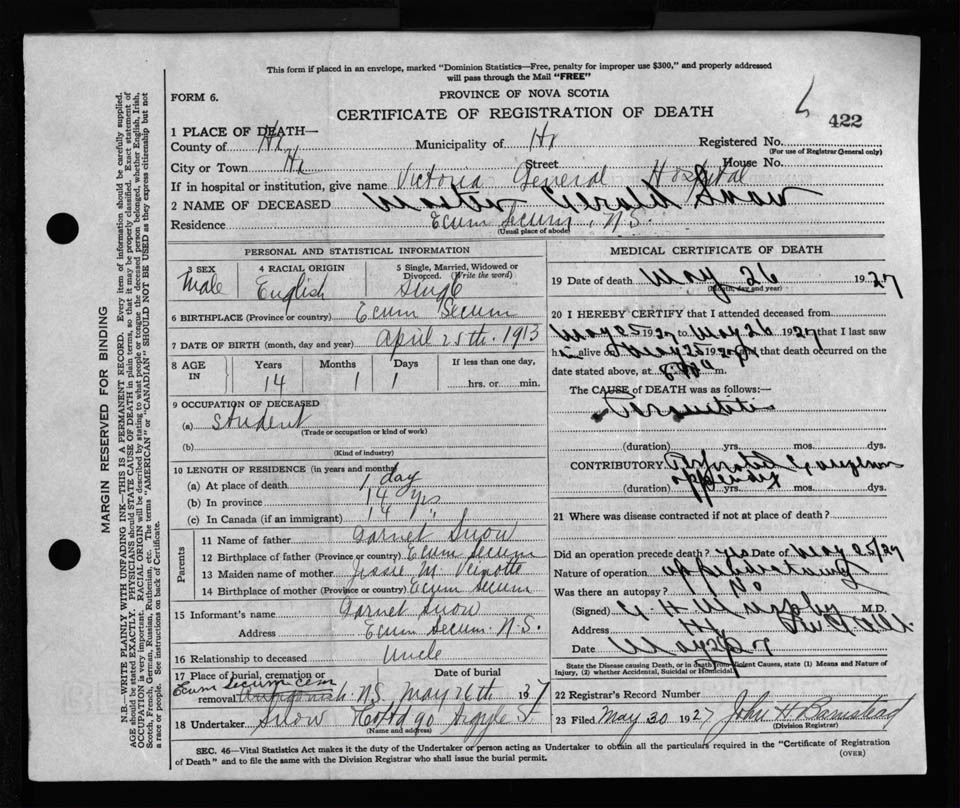 This form if placed in an envelope, marked "Dominion Statistics—Free, penalty for improper use $300," and properly addressed
will pass through the Mail "FREE"
FORM 6.
PROVINCE OF NOVA SCOTIA
CERTIFICATE OF REGISTRATION OF DEATH
422
1 PLACE OF DEATH—
County of Hx Municipality of Hx Registered No.
(For use of Registrar General only)
City or Town Hx Street House No.
If in hospital or institution, give name Victoria General Hospital
2 NAME OF DECEASED Gerald Snow
Residence Ecum Secum, N.S.
(Usual place of abode)
PERSONAL AND STATISTICAL INFORMATION
3 SEX 4 RACIAL ORIGIN 5 Single, Married, Widowed or
Divorced. (Write the word)
Male English Single
6 BIRTHPLACE (Province or country) Ecum Secum
7 DATE OF BIRTH (month, day and year) April 25th. 1913
8 AGE IN Years Months Days If less than one day,
14 1 1 hrs. or min.
9 OCCUPATION OF DECEASED
(a) Student
(Trade or occupation or kind of work)
(b)
(Kind of industry)
10 LENGTH OF RESIDENCE (in years and months)
(a) At place of death 1 day
(b) In province 14 yrs
(c) In Canada (if an immigrant) 14 "
Parents
11 Name of father Garnet Snow
12 Birthplace of father (Province or country) Ecum Secum
13 Maiden name of mother Jessie M. Veinotte
14 Birthplace of mother (Province or country) Ecum Secum
15 Informant's name Garnet Snow
Address Ecum Secum. N.S.
16 Relationship to deceased Uncle
17 Place of burial, cremation or removal Date of burial
Ecum Secum Cem
Antigonish. NS May 26th 1927
18 Undertaker Snow & Co Ltd 90 Argyle St
(Name and address)
MEDICAL CERTIFICATE OF DEATH
19 Date of death May 26 1927
(Month, day and year)
20 I HEREBY CERTIFY that I attended deceased from
May 25 1927 to May 26 1927 that I last saw
him alive on May 25 1927 and that death occurred on the
date stated above, at m.
The CAUSE of DEATH was as follows:—
(duration) yrs. mos. dys.
CONTRIBUTORY Perforated & gangrenous
appendix
(duration) yrs. mos. dys.
21 Where was disease contracted if not at place of death?
Did an operation precede death? yes Date of May 25/27
Nature of operation appendectomy
Was there an autopsy? No
(Signed) G H Murphy M.D.
Address Hx
Date May 27
State the Disease causing Death, or in death from Violent Causes, state (1) Means and Nature of
Injury, (2) whether Accidental, Suicidal or Homicidal.
22 Registrar's Record Number
23 Filed May 30 1927 John H Barnstead
(Division Registrar)
SEC. 46—Vital Statistics Act makes it the duty of the Undertaker or person acting as Undertaker to obtain all the particulars required in the "Certificate of Registration
of Death" and to file the same with the Division Registrar who shall issue the burial permit.
(OVER)
MARGIN RESERVED FOR BINDING
N.B.—WRITE PLAINLY WITH UNFADING INK—THIS IS A PERMANENT RECORD. Every item of information should be carefully supplied.
AGE should be stated EXACTLY. PHYSICIANS should STATE CAUSE OF DEATH in plain terms, so that it may be properly classified. Exact statement of
OCCUPATION is very important. RACIAL ORIGIN will be described by stating to what people or tongue the deceased person belonged, whether English, Irish,
Scotch, French, German, Russian, Ruthenian, etc. The terms "AMERICAN" or "CANADIAN" SHOULD NOT BE USED as they express citizenship but not
a race or people. See instructions on back of Certificate.